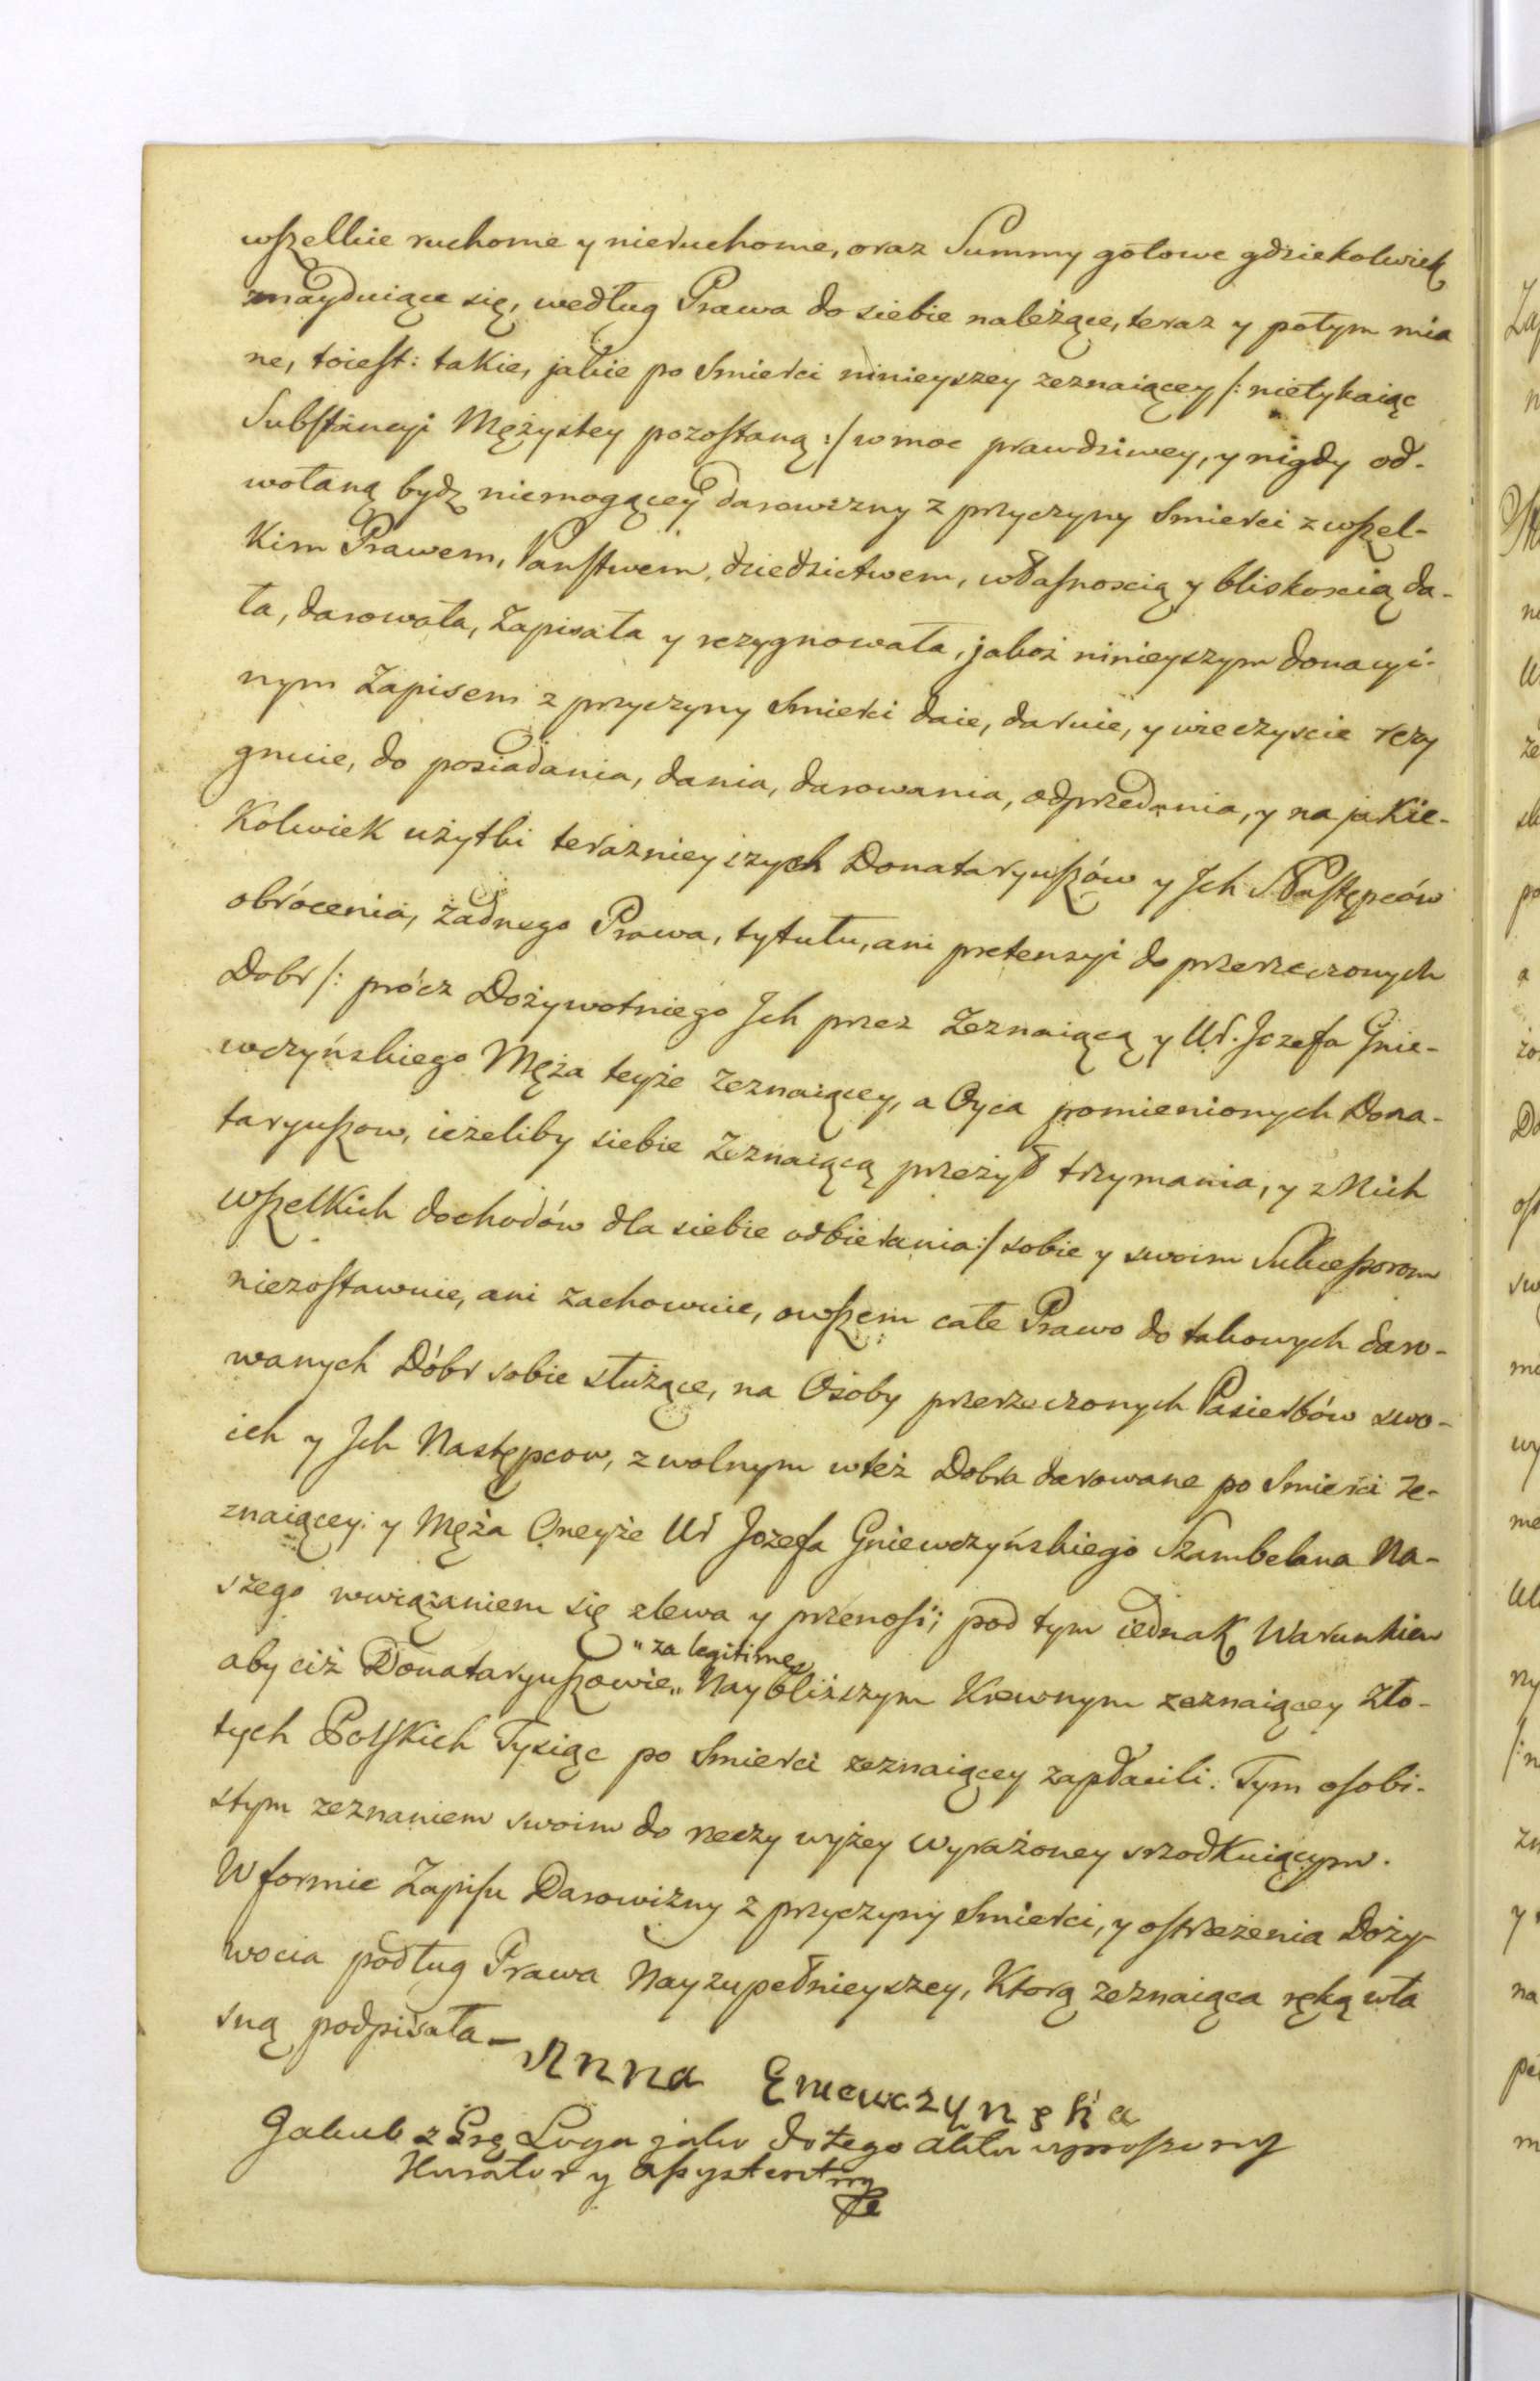 wszelkie ruchome y nieruchome, oraz Summy gotowe gdziekolwiek
znayduiące się, według Prawa do siebie należące, teraz y potym mia
ne, toiest: takie, jakie po Smierci ninieyszey zeznaiącey /: nietykaiąc
Substancyi Mężystey pozostaną :/ w moc prawdziwey, y nigdy od-
wołaną bydz niemogącey darowizny z przyczyny Smierci z wszel-
kim Prawem, Panstwem, dziedzictwem, własnoscią y bliskoscią da-
ła, darowała, Zapisała y rezygnowała, jakoż ninieyszym donacyi-
nym Zapisem z przyczyny Smierci daie, daruie, y wieczyscie rezy
gnuie, do posiadania, dania, darowania, odprzedania, y na jakie-
kolwiek użytki teraznieyszych Donataryuszów y Jch Następców
obrócenia, żadnego Prawa, tytułu, ani pretensyi do przerzeczonych
Dobr /: prócz Dożywotniego Jch przez Zeznaiącą y Ur. Jozefa Gnie-
wczyńskiego Męża teyże zeznaiącey, a Oyca pomienionych Dona-
taryuszow, ieżeliby siebie Zeznaiącą przeżył trzymania, y z Nich
wszelkich dochodów dla siebie odbierania :/ sobie y swoim Sukcessorom
niezostawuie, ani zachowuie, owszem całe Prawo do takowych daro-
wanych Dóbr sobie służące, na Osoby przerzeczonych Pasierbów swo-
ich y Jch Następcow, z wolnym wteż Dobra darowane po Smierci ze-
znaiącey y Męża Oneyże Ur Jozefa Gniewczyńskiego Szambelana Na-
szego wwiązaniem się zlewa y przenosi; pod tym iednak Warunkiem
" za legitimę
aby ciż Donataryuszowie " Naybliższym Krewnym zeznaiącey Zło-
tych Polskich Tysiąc po Smierci zeznaiącey zapłacili. Tym osobi-
stym zeznaniem swoim do rzeczy wyżey wyrażoney srzodkuiącym.
W formie Zapisu Darowizny z przyczyny Smierci, y ostrzeżenia Doży-
wocia podług Prawa Nayzupełnieyszey, Ktorą zeznaiąca ręką wła
sną podpisała –
Anna Gniewczynska
Jakub z Łoga jako do tego aktu uproszony
Kurator y Assystent mp